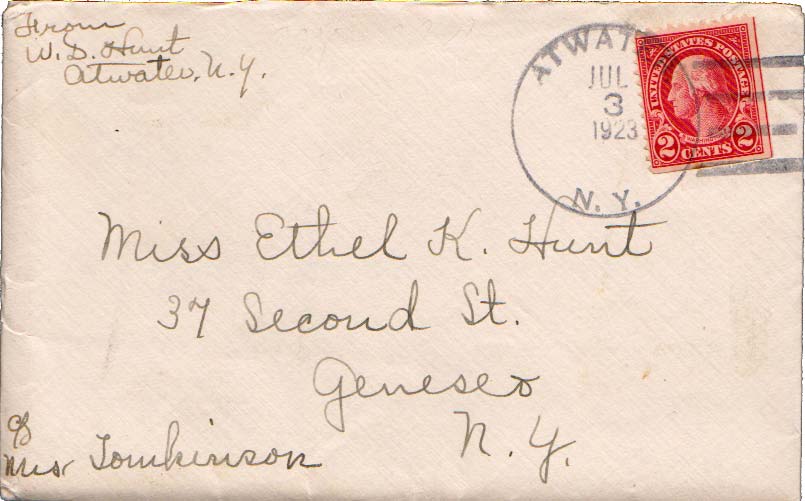 From
W. D. Hunt
Atwater, N.Y.
ATWATE
JUL
3
1923
N. Y.
UNITED STATES POSTAGE
WASHINGTON
2 CENTS 2
Miss Ethel K. Hunt
37 Second St.
Geneseo
N. Y.
c/o
Mrs Tomkinson